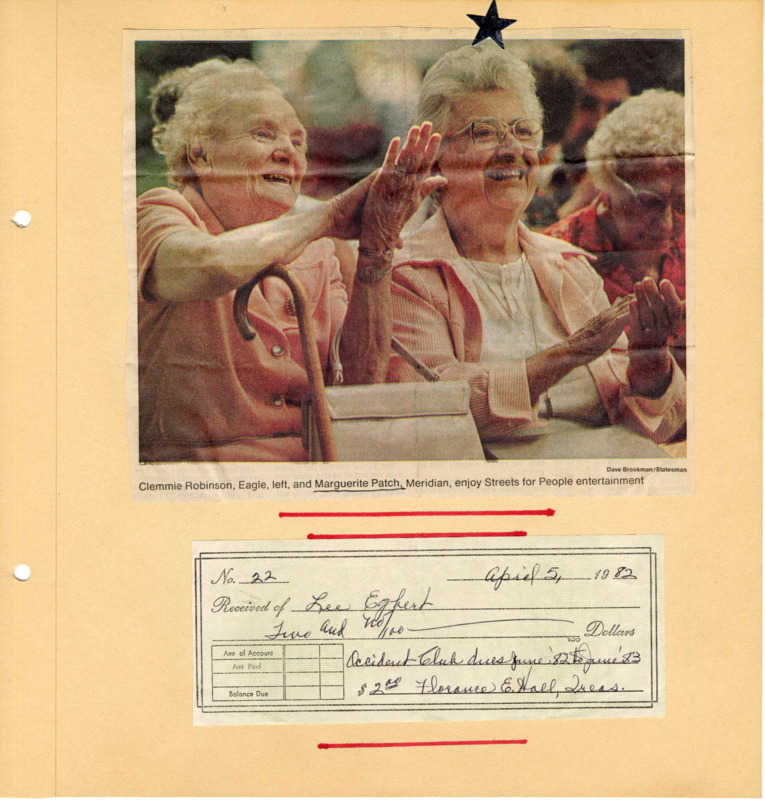 Dave Brookman/Statesman
Clemmie Robinson, Eagle, left, and Marguerite Patch, Meridian, enjoy Streets for People entertainment
No. 22 April 5, 1982
Received of Lee Egbert
Two and no/100 Dollars
100
Amt of Account
Amt Paid
Balance Due
Occident Club dues June '82 to June '83
$2.00 Florance E. Hall, Treas.